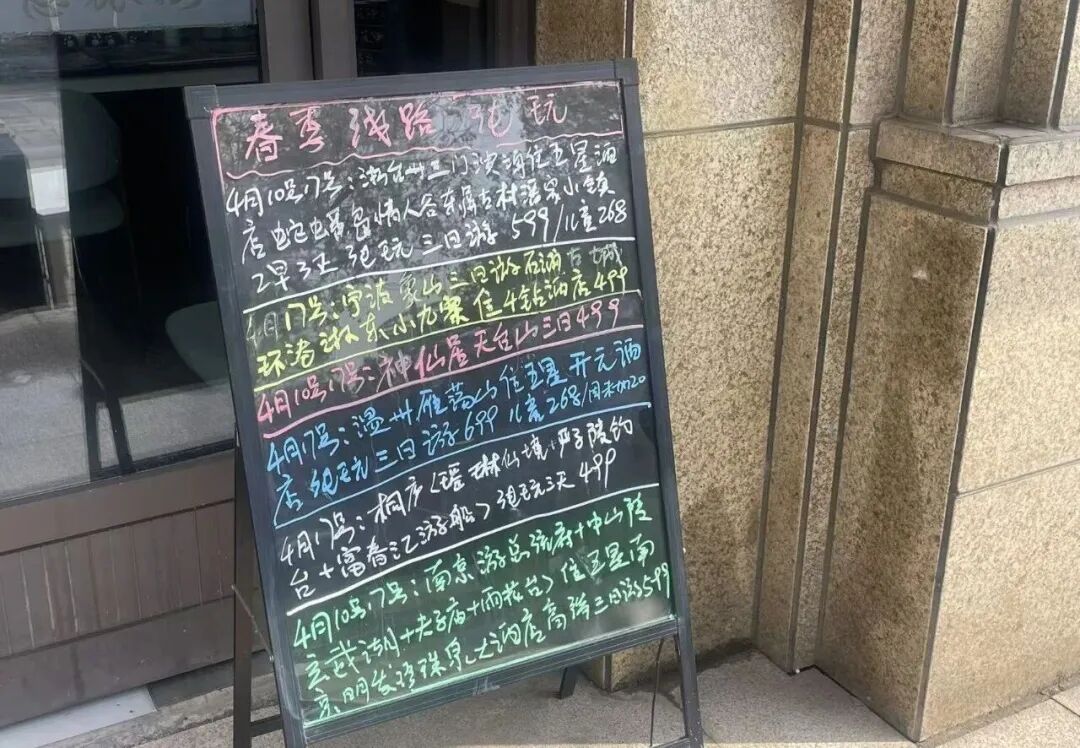 春季线路 纯玩
4月10号17号:浙台州三门滨海住五星酒
店蛇蟠岛情人谷东屏古村潘家小镇
2早3正 纯玩三日游 599/儿童268
4月17号:宁波象山三日游石浦古城
环港浙东小九寨住4钻酒店499
4月10号17号:神仙居天台山三日499
4月17号:温州雁荡山住五星开元酒
店纯玩三日游699儿童268/周末加20
4月17号:桐庐(瑶琳仙境+严子陵钓
台+富春江游船)纯玩三天499
4月10号17号:南京游总统府+中山陵
玄武湖+夫子庙+雨花台)住五星南
京明发珍珠泉大酒店高端三日游599